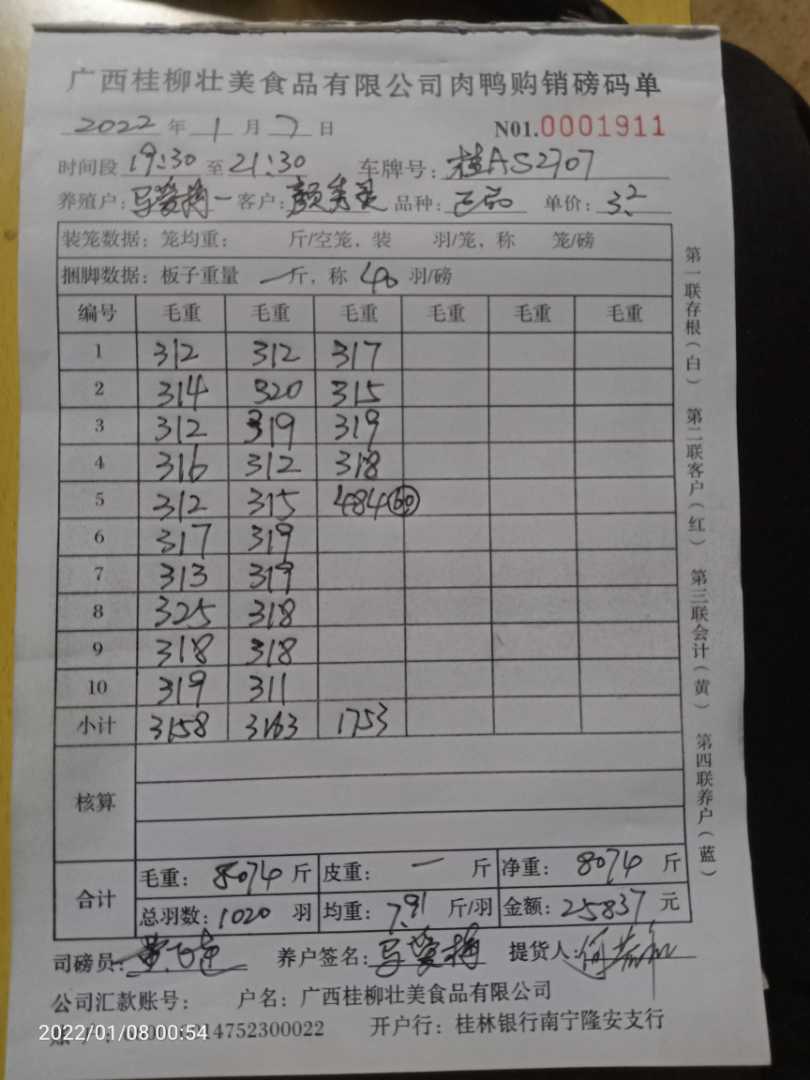 广西桂柳壮美食品有限公司肉鸭购销磅码单
2022 年 1 月 7 日 N01.0001911
时间段 19:30 至 21:30 车牌号: 桂AS2707
养殖户: 客户: 品种: 正品 单价: 3.2
装笼数据: 笼均重: 斤/空笼, 装 羽/笼, 称 笼/磅
捆脚数据: 板子重量 一 斤, 称 40 羽/磅
编号 毛重 毛重 毛重 毛重 毛重 毛重
1 312 312 317
2 314 320 315
3 312 319 319
4 316 312 318
5 312 315 484 60
6 317 319
7 313 319
8 325 318
9 318 318
10 319 311
小计 3158 3163 1753
核算
合计
毛重: 8074 斤 皮重: 一 斤 净重: 8074 斤
总羽数: 1020 羽 均重: 7.91 斤/羽 金额: 25837 元
司磅员: 养户签名: 提货人:
公司汇款账号: 户名: 广西桂柳壮美食品有限公司
14752300022 开户行: 桂林银行南宁隆安支行
第一联存根(白) 第二联客户(红) 第三联会计(黄) 第四联养户(蓝)
2022/01/08 00:54